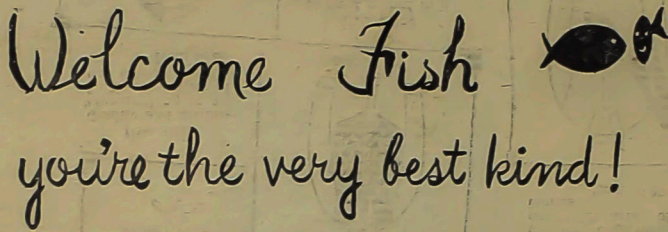 Welcome Fish
you're the very best kind!